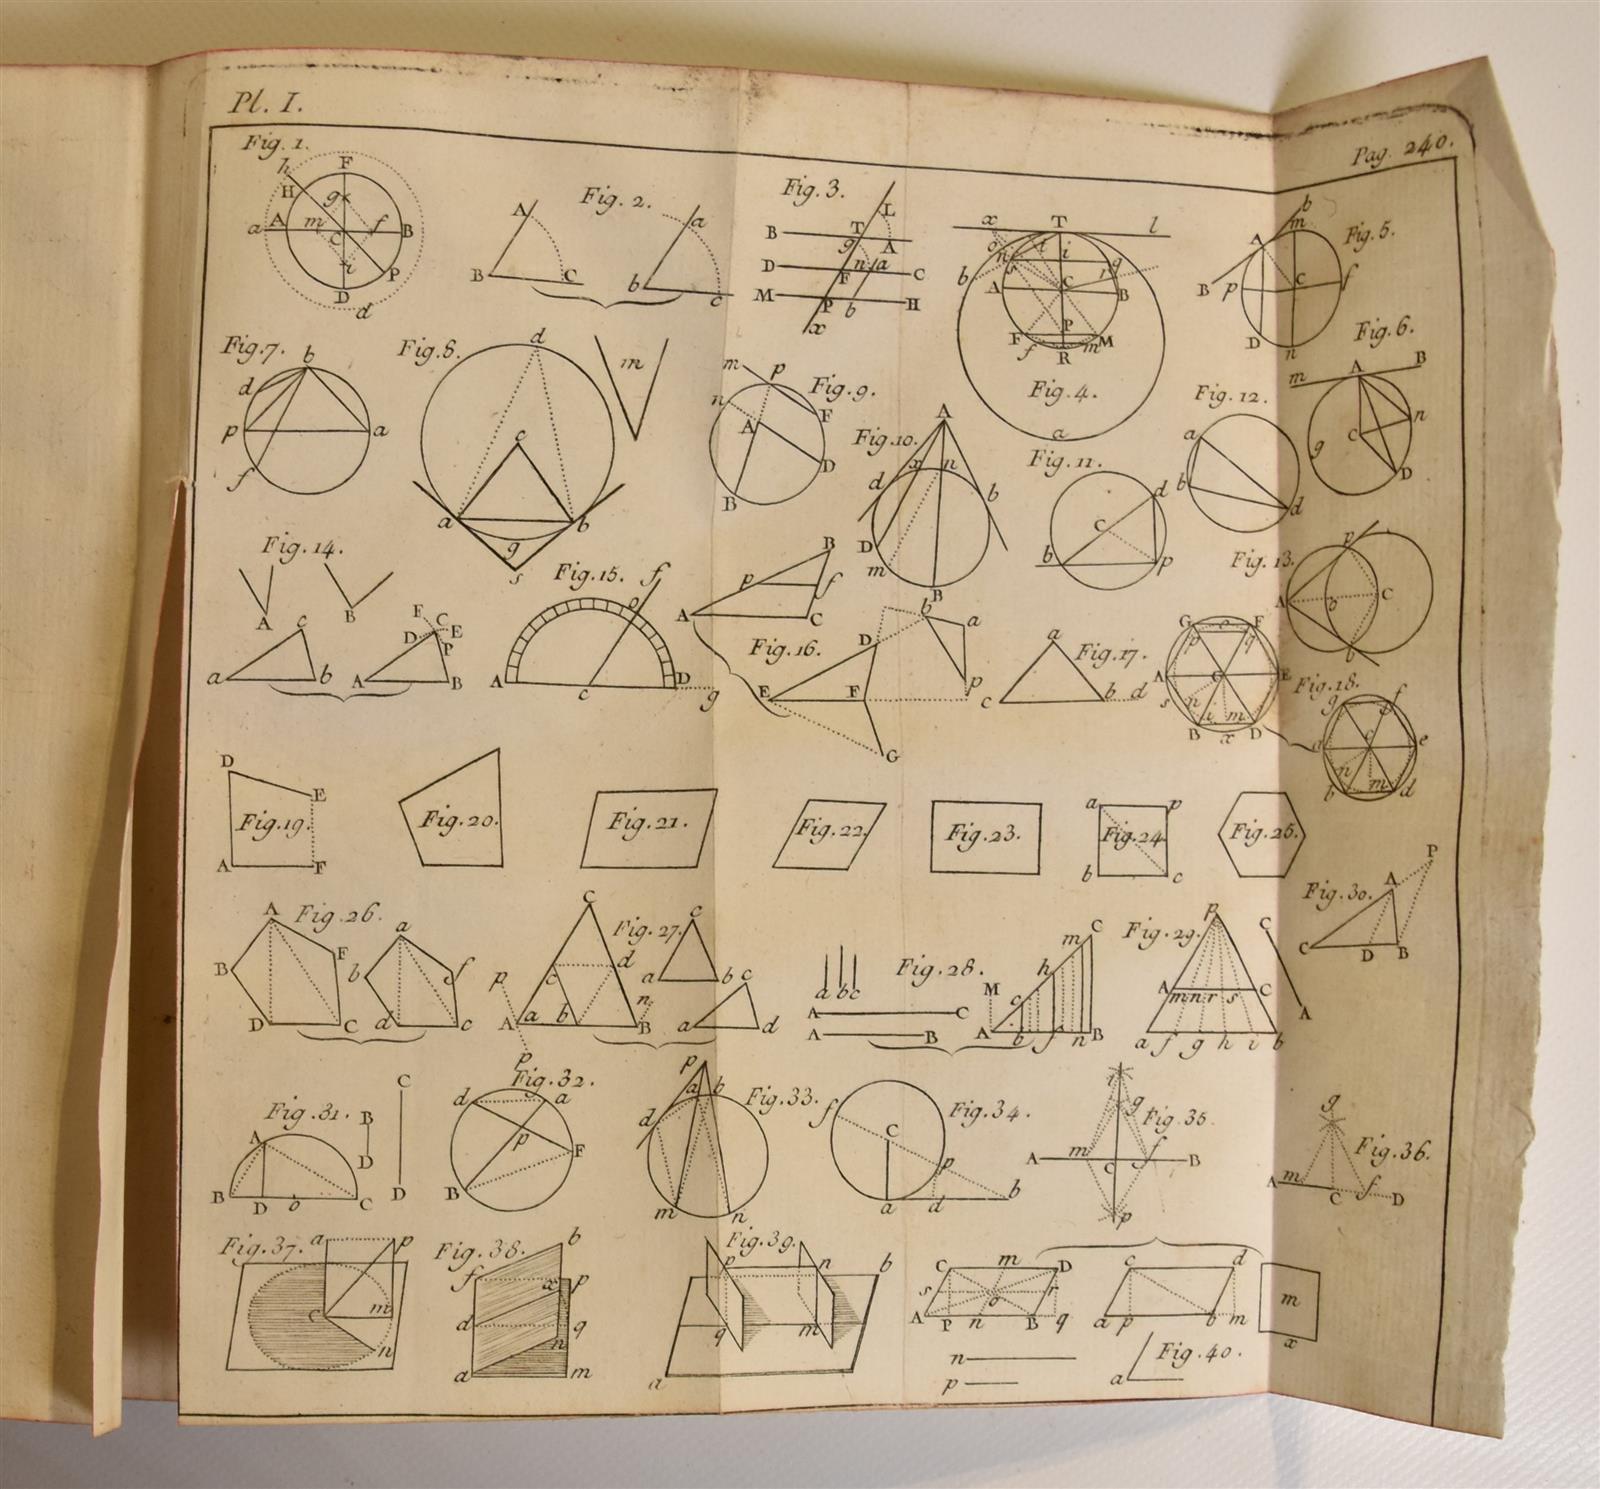 Pl. I.
Pag. 240.
Fig. 1.
h
F
H
g
A
m
f
a
B
C
i
P
D
d
Fig. 2.
A
a
B
C
b
c
Fig. 3.
L
B
T
g
A
D
n
a
F
C
M
P
b
H
x
Fig. 4.
x
T
l
o
n
t
i
s
g
b
r
A
C
B
P
F
M
f
R
m
a
Fig. 5.
b
m
A
C
f
B
p
D
n
Fig. 6.
A
B
m
n
g
C
D
Fig. 7.
b
d
p
a
f
Fig. 8.
d
m
c
a
b
g
s
Fig. 9.
m
p
n
A
F
D
B
Fig. 10.
A
x
n
d
b
D
m
B
Fig. 11.
d
C
b
p
Fig. 12.
a
b
d
Fig. 13.
p
A
b
C
b
Fig. 14.
A
B
F
c
C
D
E
P
a
b
A
B
Fig. 15.
f
o
A
c
D
g
Fig. 16.
B
p
f
A
C
b
D
a
E
F
p
G
Fig. 17.
a
c
b
d
Fig. 18.
G
o
F
p
q
A
C
E
s
n
i
m
B
x
D
g
f
a
c
e
n
m
b
d
D
E
Fig. 19.
A
F
Fig. 20.
Fig. 21.
Fig. 22.
Fig. 23.
a
p
Fig. 24.
b
c
Fig. 25.
Fig. 26.
A
a
F
f
B
b
D
C
d
c
Fig. 27.
C
c
d
p
c
a
b
n
A
a
b
B
c
a
d
p
Fig. 28.
a
b
c
A
C
A
B
C
m
h
M
c
A
b
f
n
B
Fig. 29.
p
C
A
m
n
r
s
C
A
a
f
g
h
i
b
Fig. 30.
P
A
C
D
B
Fig. 31.
C
B
A
D
B
D
o
C
D
Fig. 32.
d
a
p
F
B
Fig. 33.
p
a
b
d
m
n
Fig. 34.
f
C
p
a
d
b
Fig. 35.
g
A
m
C
f
B
p
Fig. 36.
g
m
A
C
f
D
Fig. 37.
a
p
C
m
n
Fig. 38.
b
f
x
p
d
q
n
a
m
Fig. 39.
p
n
b
q
m
a
C
m
D
s
o
r
A
P
n
B
q
c
d
a
p
b
m
m
x
n
p
Fig. 40.
a